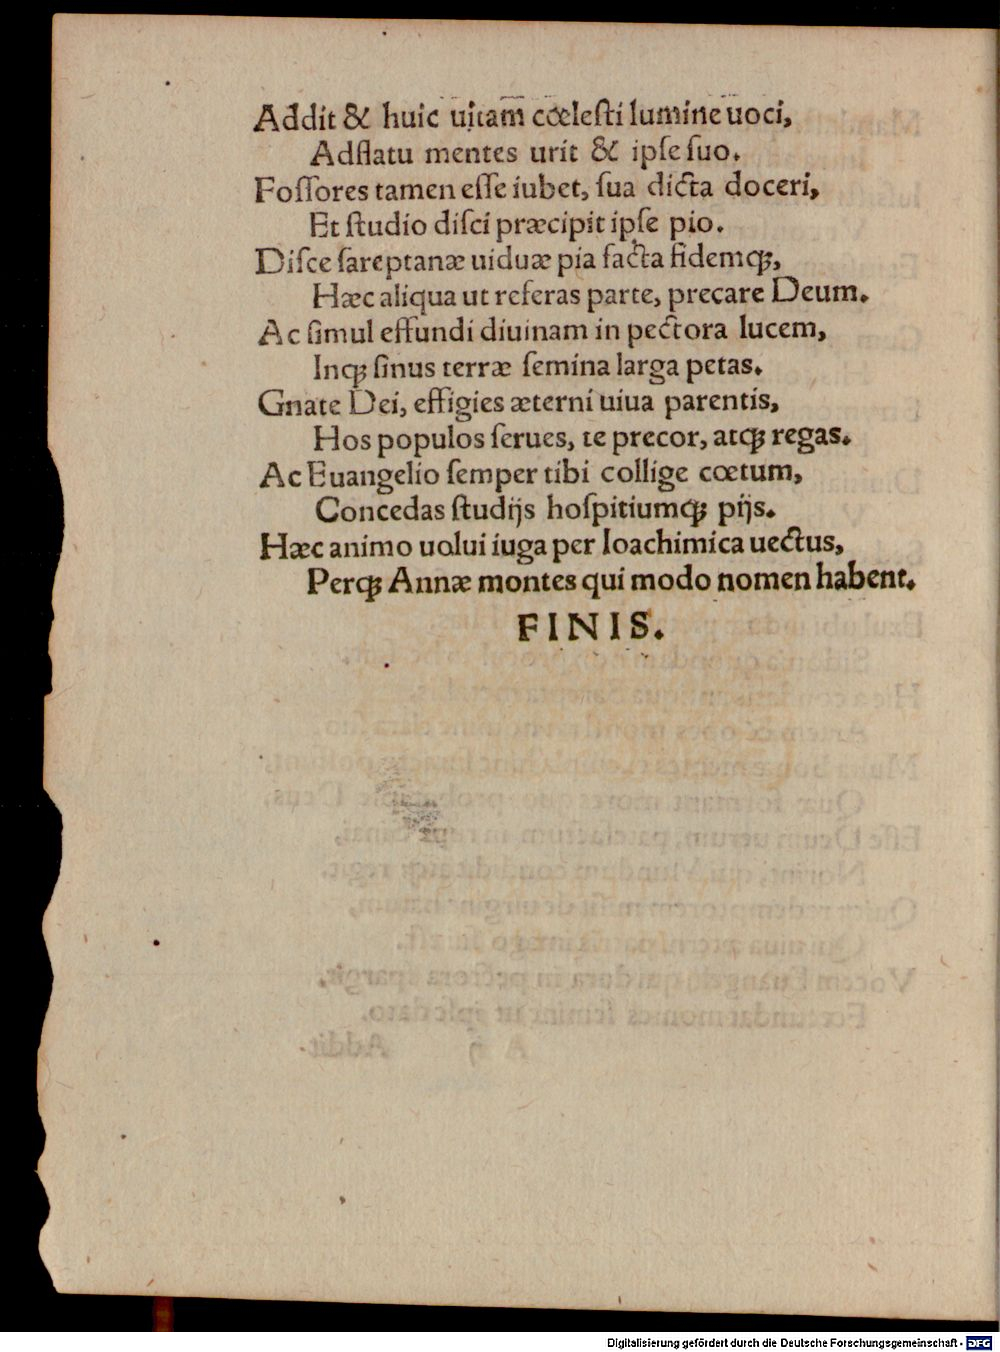 Addit & huic uitam cœleſti lumine uoci,
Adflatu mentes urit & ipſe ſuo.
Foſſores tamen eſſe iubet, ſua dicta doceri,
Et ſtudio diſci præcipit ipſe pio.
Diſce ſareptanæ uiduæ pia facta fidemq́;,
Hæc aliqua ut referas parte, precare Deum.
Ac ſimul effundi diuinam in pectora lucem,
Inq́; ſinus terræ ſemina larga petas.
Gnate Dei, effigies æterni uiua parentis,
Hos populos ſerues, te precor, atq́; regas.
Ac Euangelio ſemper tibi collige cœtum,
Concedas ſtudijs hoſpitiumq́; pijs.
Hæc animo uolui iuga per Ioachimica uectus,
Perq́; Annæ montes qui modo nomen habent.
FINIS.
Digitalisierung gefördert durch die Deutsche Forschungsgemeinschaft - DFG